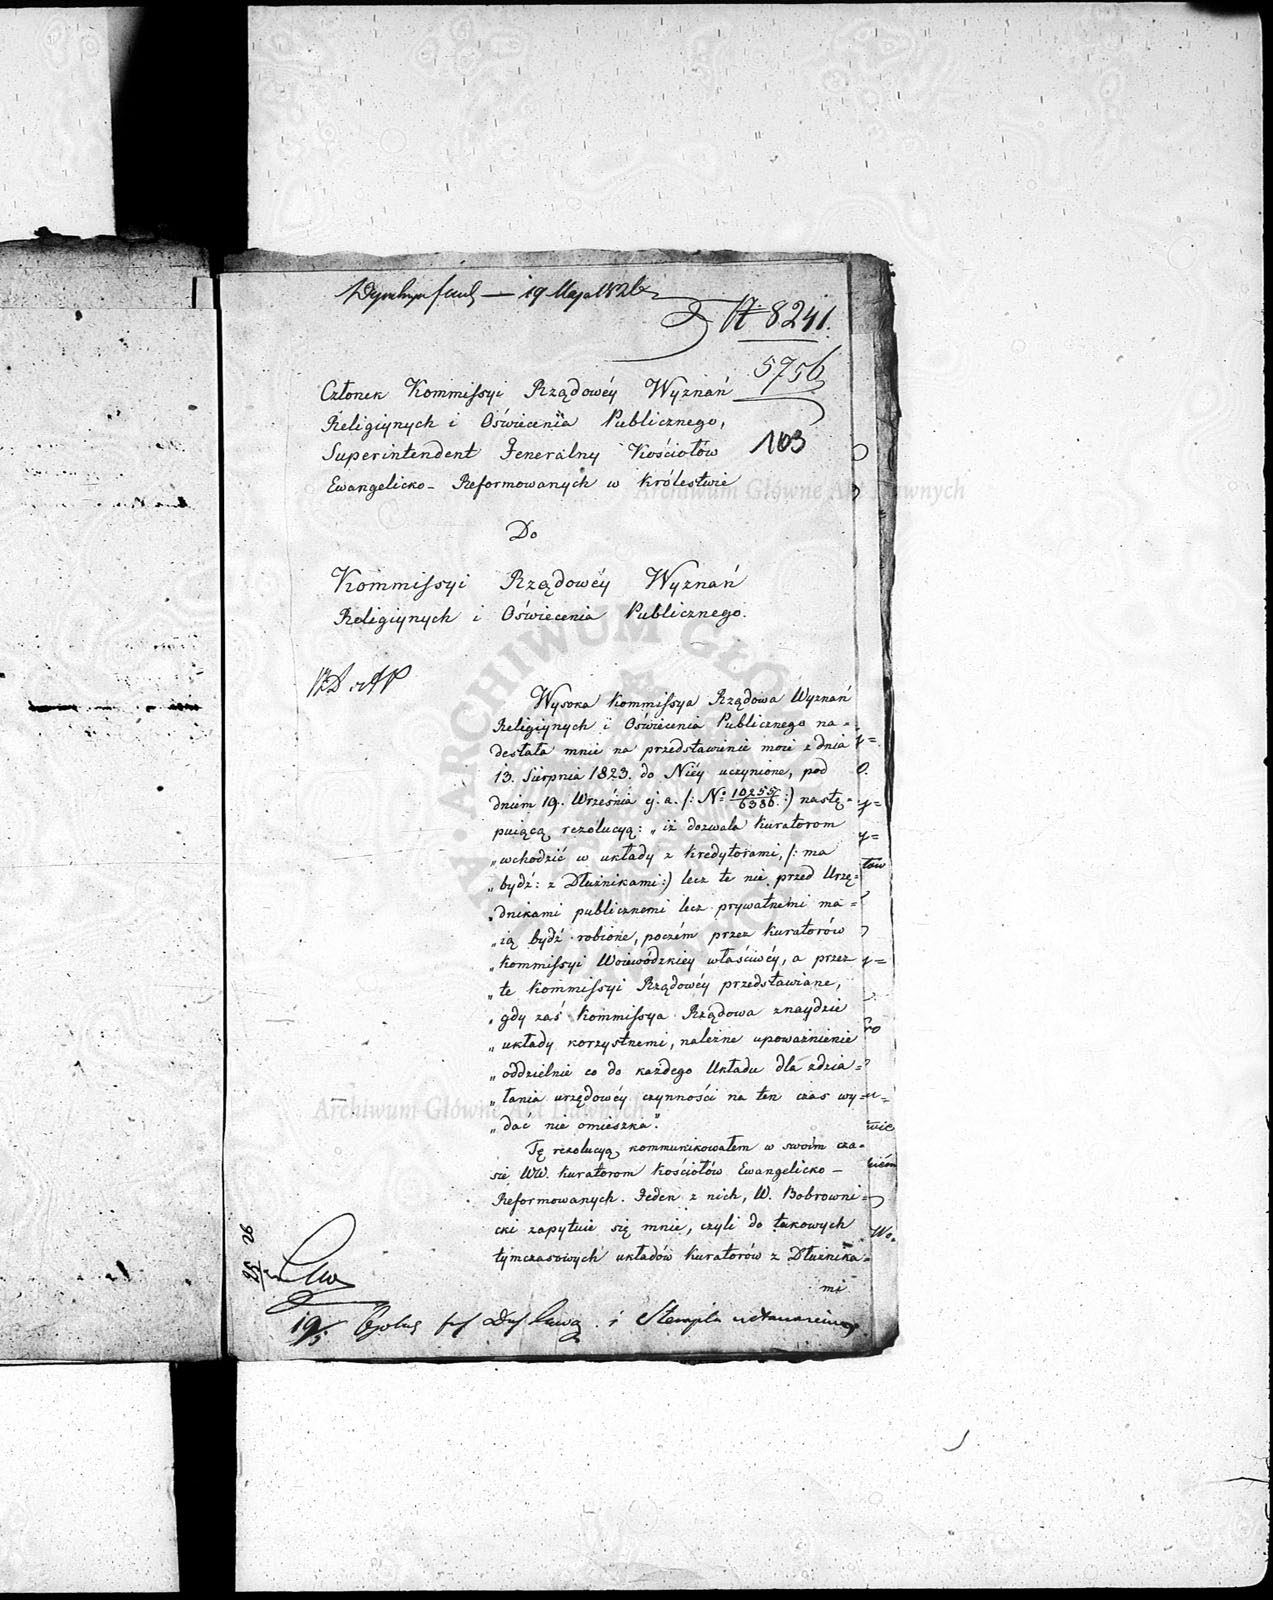 19 Maja 1826
N. 8241.
5756
103
Członek Kommissyi Rządowéy Wyznań
Religiynych i Oświecenia Publicznego,
Superintendent Jeneralny Kościołów
Ewangelicko-Reformowanych w Królestwie
Do
Kommissyi Rządowéy Wyznań
Religiynych i Oświecenia Publicznego.
Wysoka Kommissya Rządowa Wyznań
Religiynych i Oświecenia Publicznego na=
desłała mnie na przedstawienie moie z dnia
13. Sierpnia 1823. do Niéy uczynione, pod
dniem 19. Września ej. a. /: No 10255/6386 :/ nastę=
puiącą rezolucyą: „iż dozwala Kuratorom
„wchodzić w układy z Kredytorami, /: ma
„bydź: z Dłużnikami :/ lecz te nie przed Urzę=
„dnikami publicznemi lecz prywatnémi ma=
„ią bydź robione, poczém przez Kuratorów
„Kommissyi Woiewódzkiey właściwéy, a przez
„te Kommissyi Rządowéy przedstawiane,
„gdy zaś Kommissya Rządowa znaydzie
„układy korzystnemi, należne upoważnienie
„oddzielnie co do każdego Układu dla zdzia=
„łania urzędowéy czynności na ten czas wy=
„dac nie omieszka".
Tę rezolucyą kommunikowałem w swoim cza=
sie WW. Kuratorom Kościołów Ewangelicko-
Reformowanych. Jeden z nich, W. Bobrowni=
cki zapytuie się mnie, czyli do takowych
tymczasowych układów Kuratorów z Dłużnika=
mi
19/5 i Stempla
Archiwum Główne Akt Dawnych
Archiwum Główne Akt Dawnych
ARCHIWUM GŁÓWNE AKT DAWNYCH